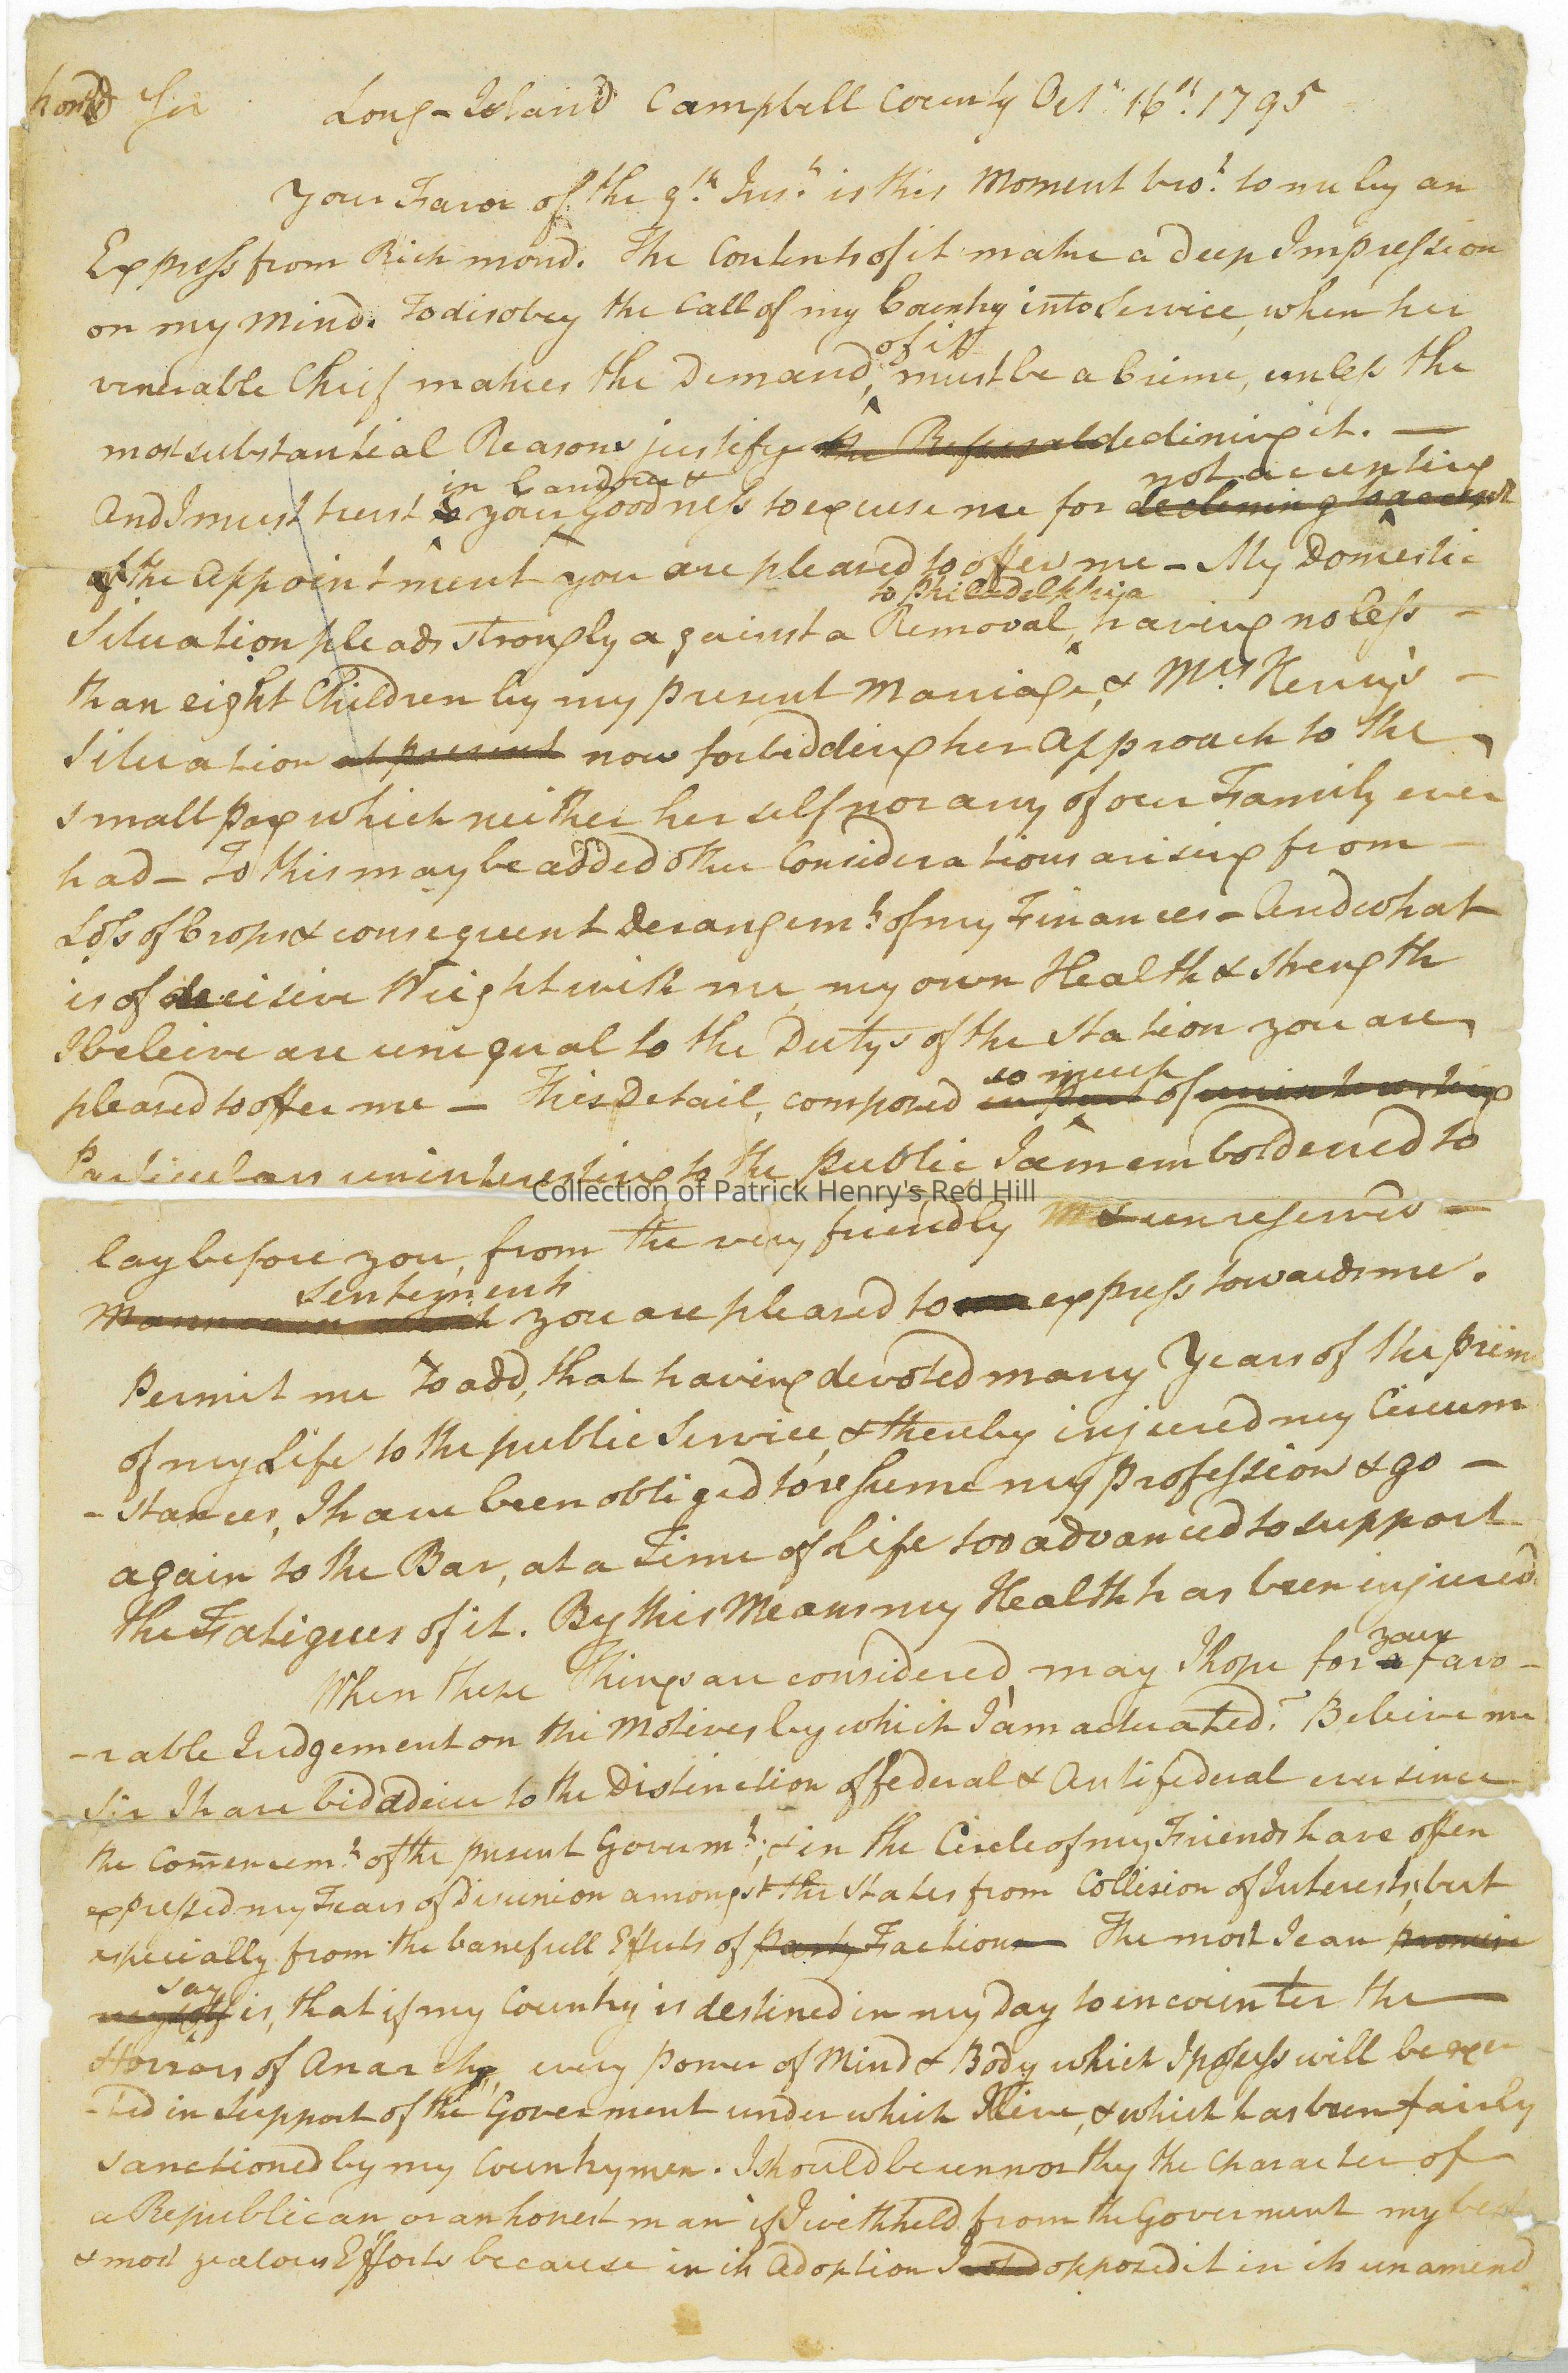 hond Sir Long-Island Campbell County Octr. 16th. 1795
Your Favor of the 9th. Inst. is this Moment brot. to me by an
Express from Richmond. The Contents of it make a deep Impression
on my mind. To disobey the Call of my Country into Service, when her
of it
venerable Chief makes the Demand, must be a Crime, unless the
most substantial Reasons justify the Refusal declining it. —
in Candour & not accepting
And I must trust to your goodness to excuse me for declining to accept
of the appointment you are pleased to offer me – My Domestic
to Philadelphia
Situation pleads strongly against a Removal, having no less –
than eight Children by my present Marriage, & Mrs. Henry's –
Situation at present now forbidding her approach to the
small pox which neither herself nor any of our Family ever
had – To this may be added other Considerations arising from –
Loss of Crops & consequent Derangemt. of my Finances – And what
is of decisive Weight with me, my own Health & Strength
I beleive are unequal to the Dutys of the Station you are
so much
pleased to offer me – This Detail, composed in part of uninteresting
Particulars uninteresting to the public I am emboldened to
Collection of Patrick Henry's Red Hill
lay before you, from the very friendly & unreserved –
Sentiments
Manner in which you are pleased to express towards me.
Permit me to add, that having devoted many Years of the prime
of my Life to the public Service, & thereby injured my Circum
-stances, I have been obliged to resume my profession & go –
again to the Bar, at a Time of Life too advanced to support
the Fatigues of it. By this Means my Health has been injured
your
When these Things are considered, may I hope for a favo-
-rable Judgement on the Motives by which I am actuated? Beleive me
Sir I have bid adieu to the Distinction of federal & Antifederal ever since
the Commencemt. of the present Governmt., & in the Circle of my Friends have often
expressed my Fears of Disunion amongst the States from Collision of Interests, but
especially from the banefull Effects of Party Faction – The most I can promise
say
myself is, that if my Country is destined in my Day to incounter the —
Horrors of Anarchy, every Power of Mind & Body which I possess will be exer
-ted in Support of the Goverment under which I live, & which has been fairly
sanctioned by my Countrymen. I should be unworthy the Character of
a Republican or an honest man if I withheld from the Goverment my best
& most zealous Efforts because in its Adoption I opposed it in its unamend